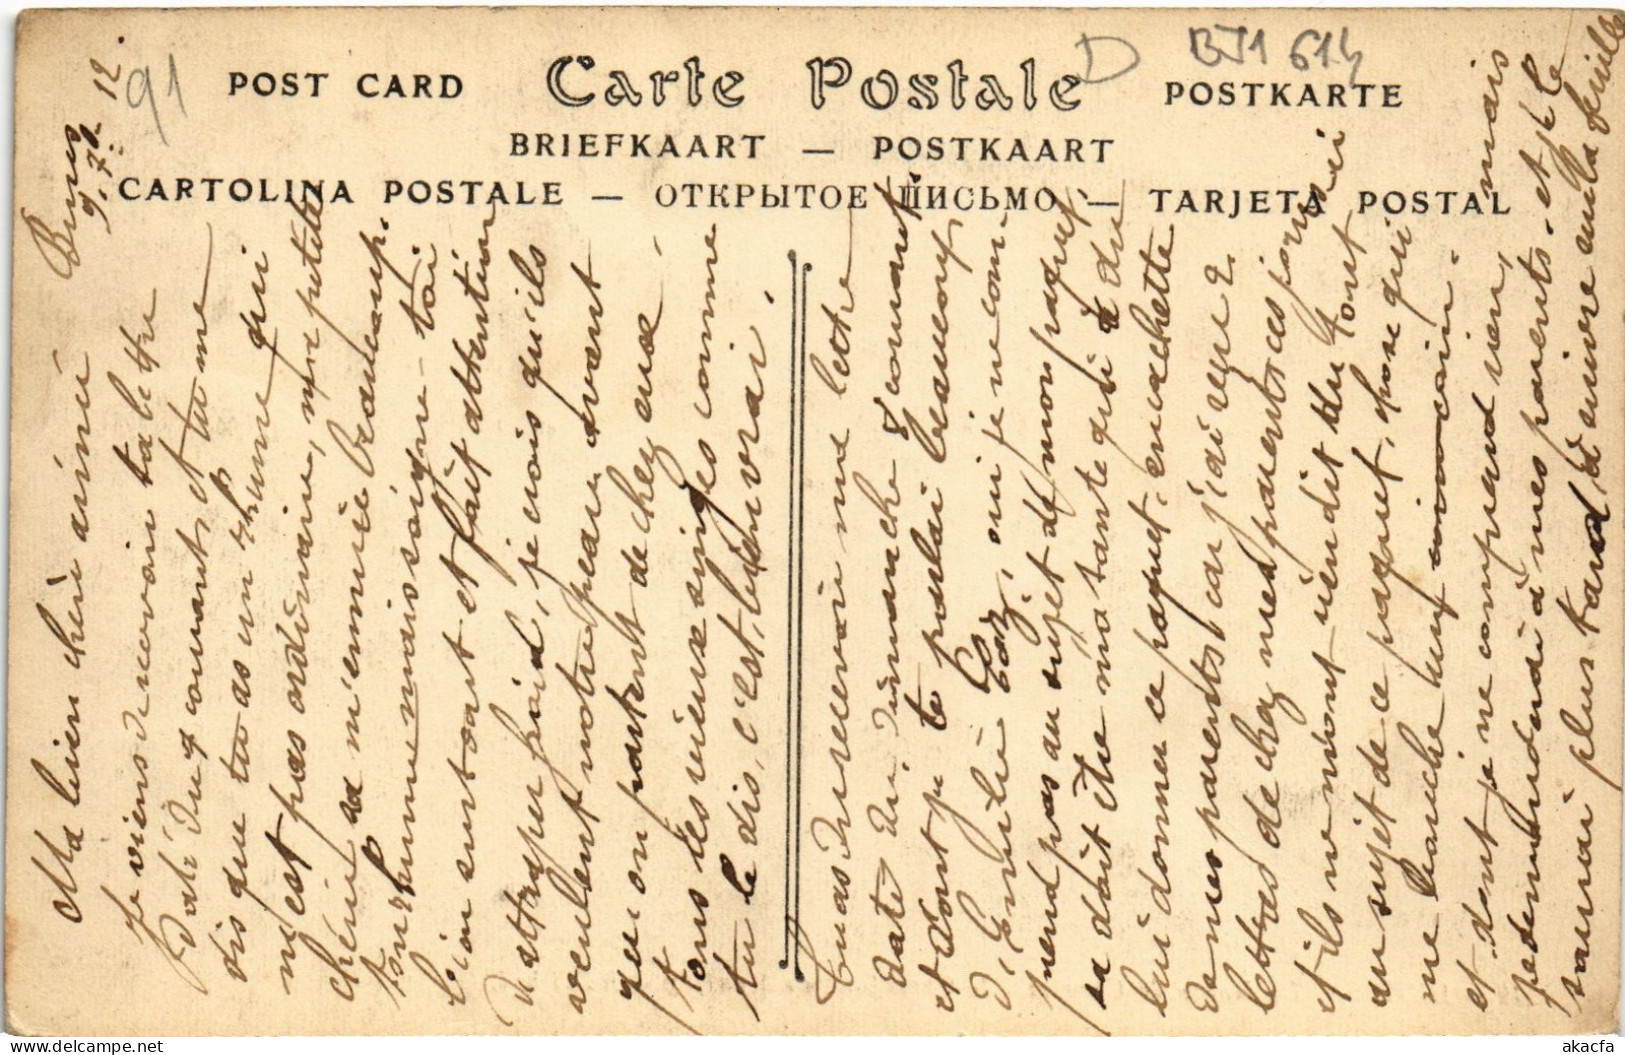 91
D
BJ1 614
POST CARD
Carte Postale
POSTKARTE
BRIEFKAART — POSTKAART
CARTOLINA POSTALE — ОТКРЫТОЕ ПИСЬМО — TARJETA POSTAL
12.
Ma bien chère aimée
Je viens de recevoir ta lettre
Daté du 9 courant, et tu me
dis que tu as un rhume qui
n'est pas ordinaire, ma petite
chérie sa m'ennuie beaucoup.
ton rhume mais soigne-toi
bien surtout et fait attention
D'attraper froid, je crois qu'ils
veulent notre peau avant
qu'on partent de chez eux
tous les vieux singes comme
tu le dis, c'est bien vrai.
Tu as du recevoir une lettre
date du Dimanche 8 courant
et dont je te parlai
D'Emilie oui je ne com-
prend pas au sujet de mon paquet
sa doit être ma tante qui a du
lui donner ce paquet, en cachette
de mes parents, car j'ai reçu 2
lettres de chez mes parents ces jours ci
et ils ne m'ont rien dit du tout
au sujet de ce paquet, chose qui
me bouche un coin.
et dont je ne comprend rien, mais
je demanderai à mes parents. et je le
saurai plus tard, à suivre